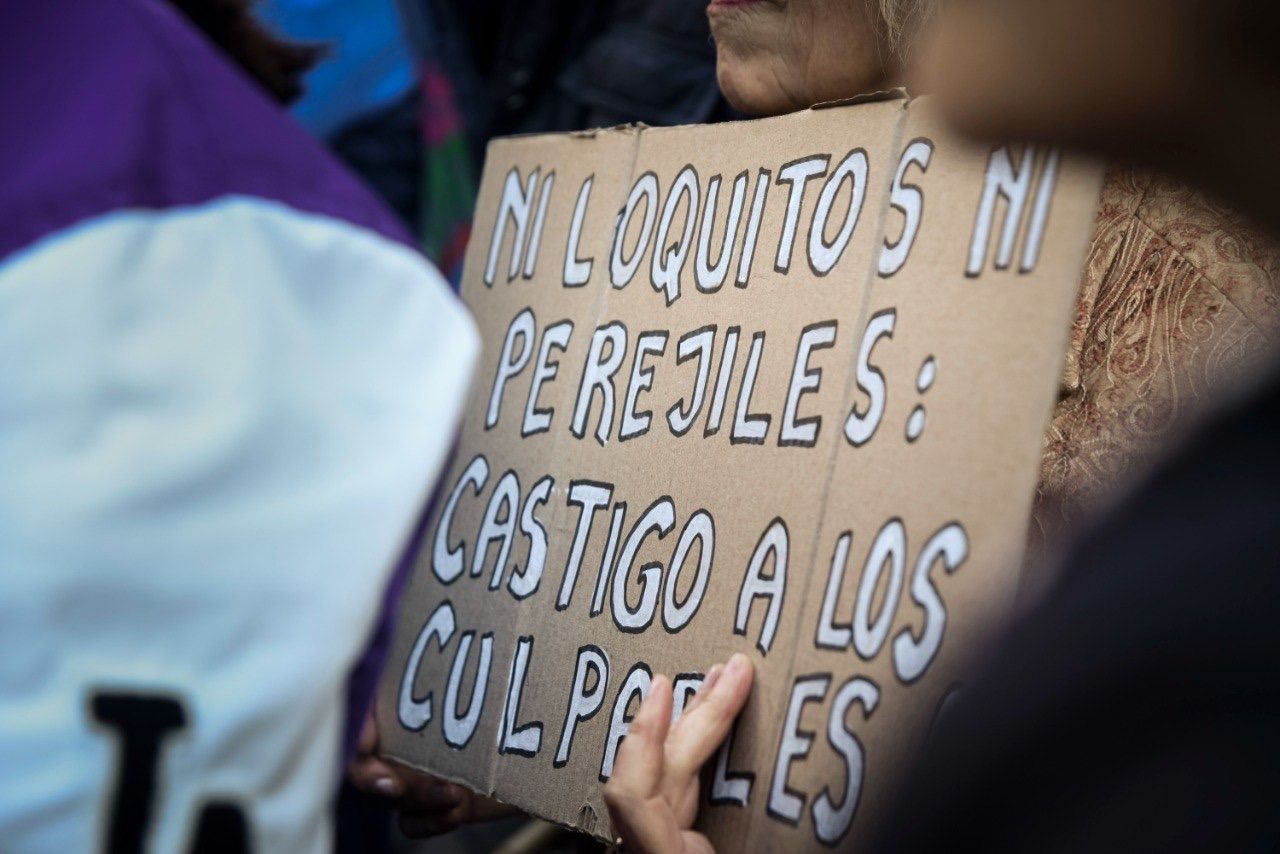 NI LOQUITOS NI
PEREJILES:
CASTIGO A LOS
CULPABLES